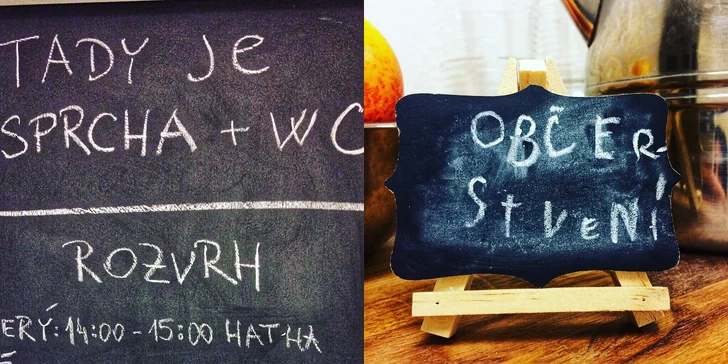 TADY JE
SPRCHA + WC
ROZVRH
ERÝ: 14:00 - 15:00 HATHA
OBČER-
STVENÍ